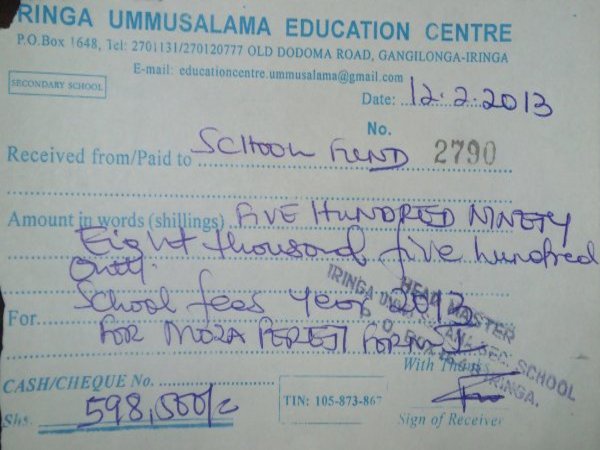 IRINGA UMMUSALAMA EDUCATION CENTRE
P.O.Box 1648, Tel: 2701131/270120777 OLD DODOMA ROAD, GANGILONGA-IRINGA
E-mail: educationcentre.ummusalama@gmail.com
SECONDARY SCHOOL
Date: 12.2.2013
No. 2790
Received from/Paid to SCHOOL FUND
Amount in words (shillings) FIVE HUNDRED NINETY
Eight thousand five hundred
only.
School fees year 2013
For FOR MOZA FORM I
HEAD MASTER
IRINGA SEC. SCHOOL
P. O. BOX IRINGA.
With Thanks
CASH/CHEQUE No.
Shs. 598,500/=
TIN: 105-873-867
Sign of Receiver